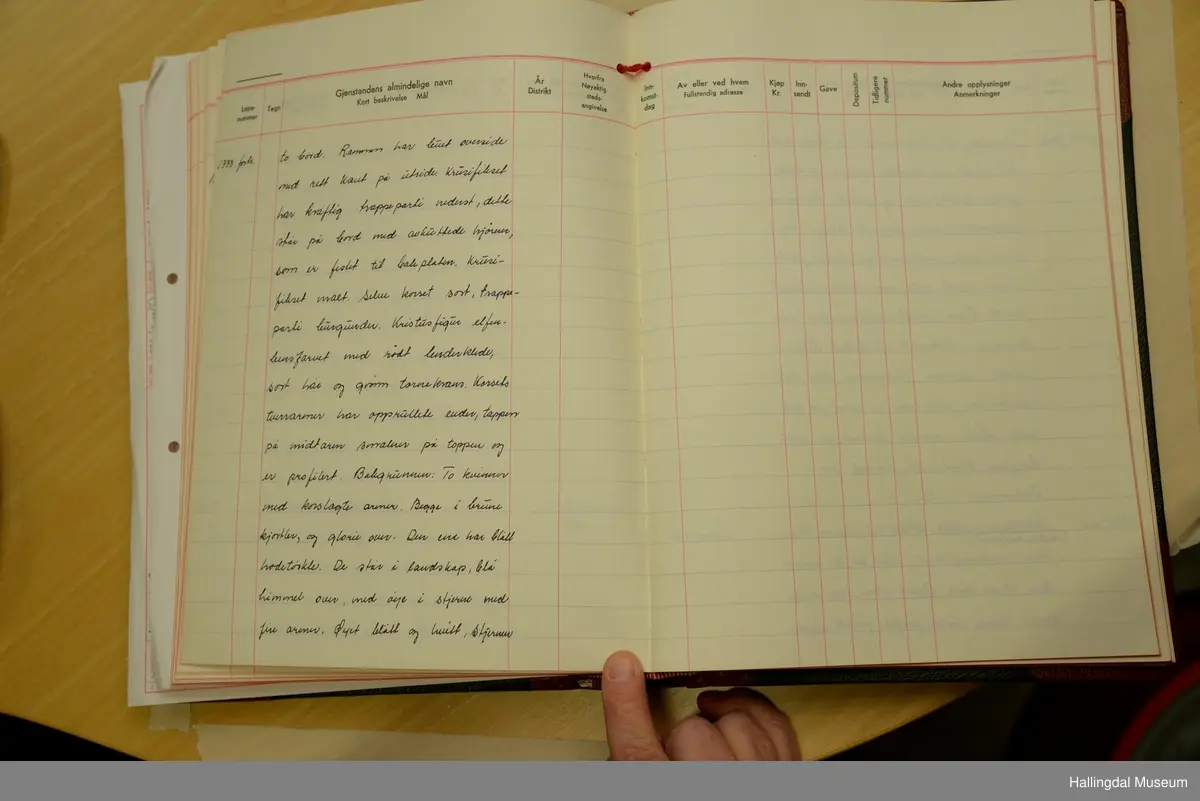 Løpe-
nummer
Tegn
Gjenstandens almindelige navn
Kort beskrivelse Mål
År
Distrikt
Hvorfra
Nøyaktig
steds-
angivelse
Inn-
komst-
dag
Av eller ved hvem
Fullstendig adresse
Kjøp
Kr.
Inn-
sendt
Gave
Depositum
Tidligere
nummer
Andre opplysninger
Anmerkninger
1733 forts. to bord. Rammen har buet overside
med rett kant på utside. Krusifikset
har kraftig trappeparti nederst, dette
står på bord med avkuttede hjørner,
som er festet til bakplaten. Krusi-
fikset malt. Selve korset sort, trappe-
parti burgunder. Kristusfigur elfen-
bensfarvet med rødt lendeklede,
sort hår og grønn tornekrans. Korsets
tverrarmer har opprullete ender, tappen
på midtaren smalner på toppen og
er profilert. Bakgrunnen: To kvinner
med korslagte armer. Begge i brune
kjortler, og glorie over. Den ene har blått
hodetørkle. De står i landskap, blå
himmel over, med øye i stjerne med
fire armer. Øyet blått og hvitt, stjernen
Hallingdal Museum